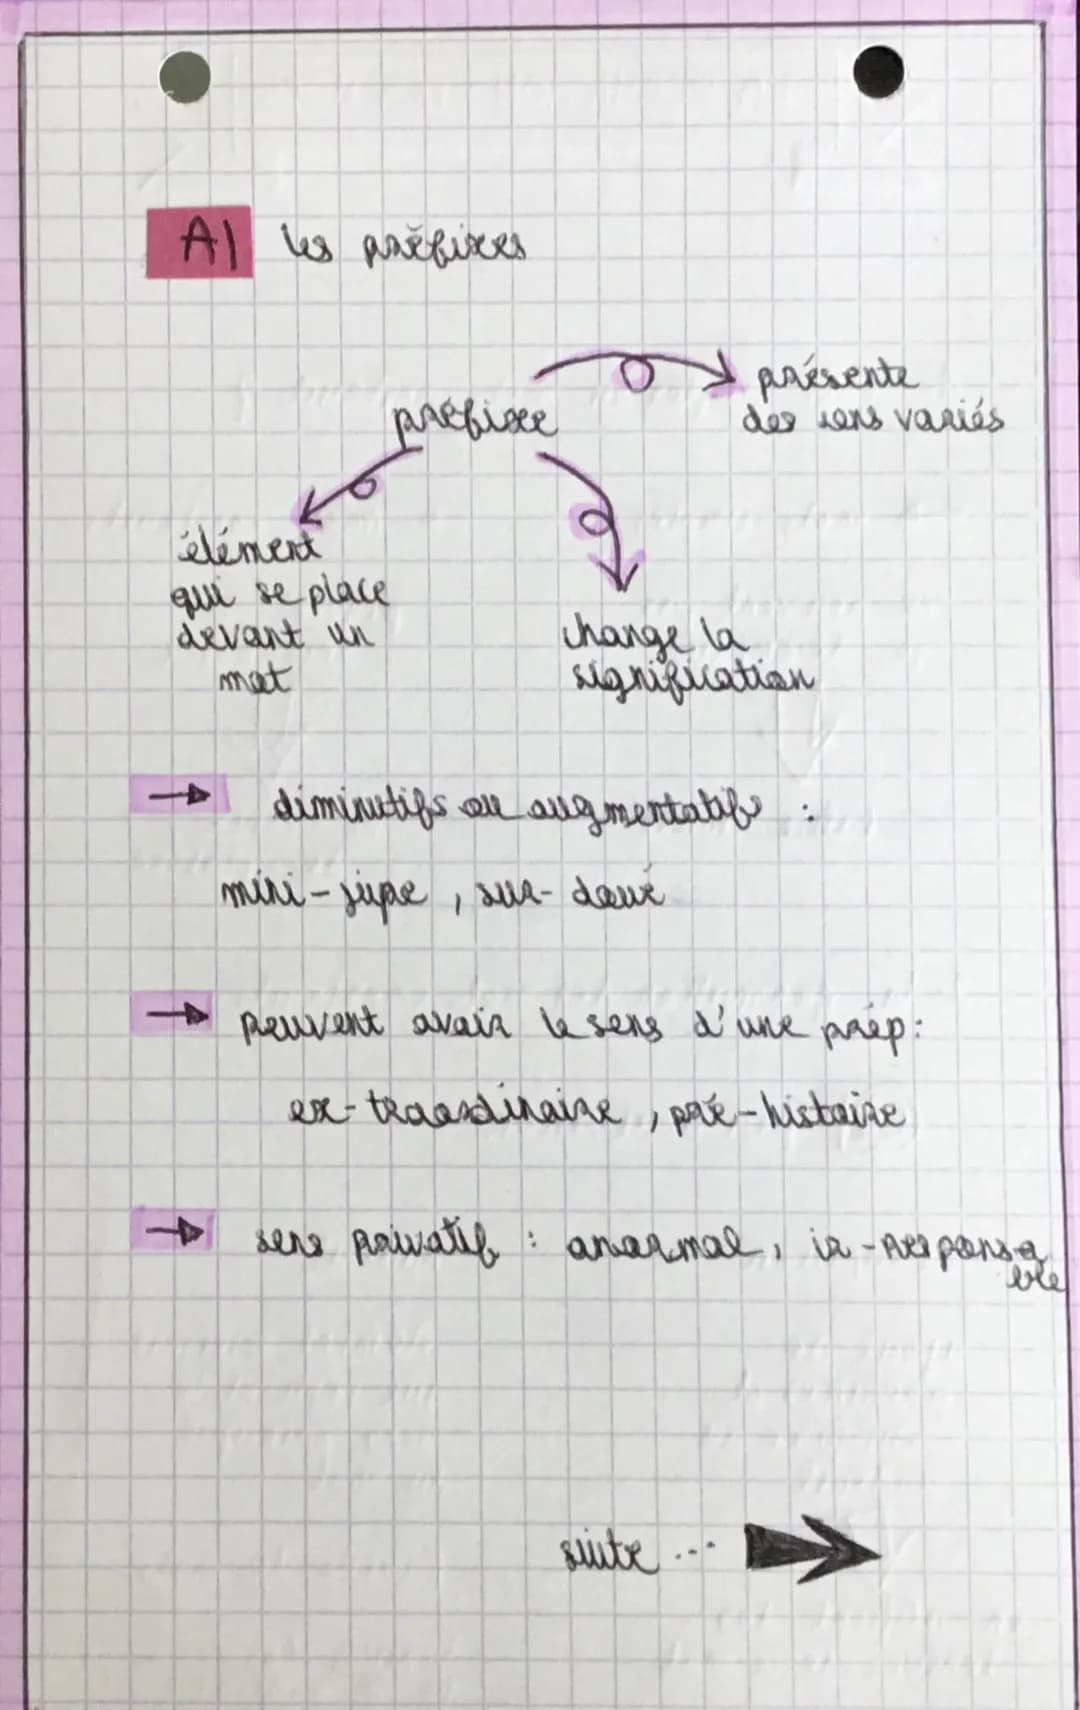 A| les préfixes
préfixe
présente
des sens variés
élément
qui se place
devant un
mot
change la
signification
→ diminutifs ou augmentatifs :
mini-jupe, sur-doué
→ peuvent avoir le sens d'une prép:
ex-traordinaire, pré-histoire
→ sens privatif : anormal, ir-responsa
ble
suite ...